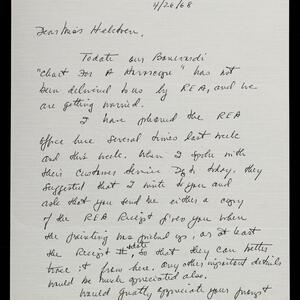 4/26/68
Dear Miss Heldren,
To date our Boccardi
"Chart For A Horoscope" has not
been delivered to us by REA, and we
are getting worried.
I have phoned the REA
office here several times last week
and this week. When I spoke with
their Customer Service Dept today, they
suggested that I write to you and
ask that you send me either a copy
of the REA Receipt given you when
the painting was picked up, or at least
the Receipt # + date so that they can better
trace it from here. Any other important details
would be much appreciated also.
Would greatly appreciate your prompt